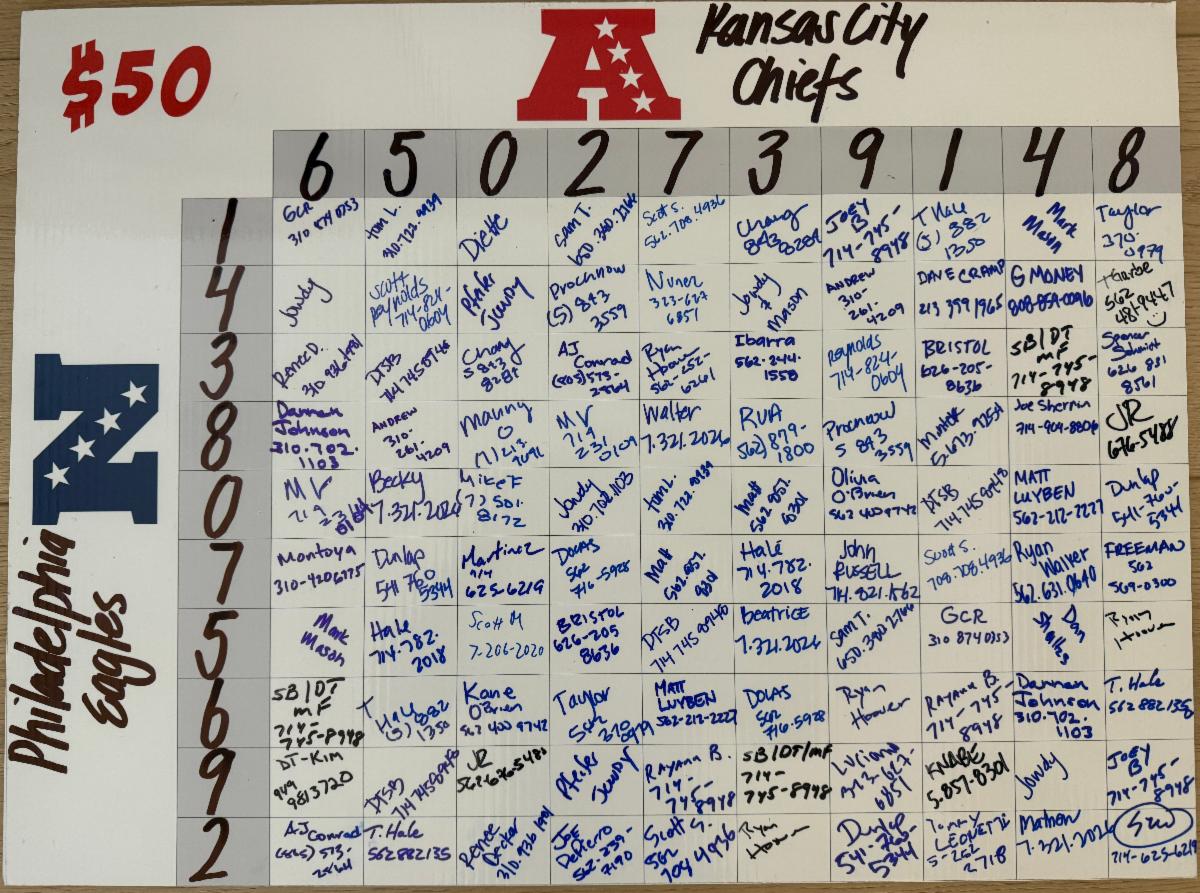 $50
A
Kansas City
Chiefs
N
Philadelphia
Eagles
6 5 0 2 7 3 9 1 4 8
1
GCR
310 874 0353
Tom L.
310.722.9939
Diette
Sam T.
650.340.2766
Scott S.
562.708.4936
Chang
843 8284
JOEY
B
714-745-
8948
T Hale
(5) 882
1350
Mark
Mason
Taylor
370-
4979
4
Jowdy
Scott
Reynolds
714-824-
0604
Pfeifer
Jewdy
Prochnow
(5) 843
3559
Nunez
323-627
6851
Jowdy
+
Mason
ANDREW
310-
261-
4209
DAVE CRAMP
213 399 1965
G MONEY
808-854-0096
562
3
Renee D.
DTSB
Chang
5 843
8284
AJ
Conrad
(805) 573-
2864
Ryan
Hoover
562-252-
6261
Ibarra
562.244.
1558
Reynolds
714-824-
0604
BRISTOL
626-205-
8636
SB/DT
MF
714-745-
8948
Spencer
Schmidt
626 831
8561
8
Dannen
Johnson
310.702.
1103
ANDREW
310-
261-
4209
Manny
O
MV
719
231
0109
Walter
7.321.2026
RUA
562) 879-
1800
Prochnow
5 843
3559
Joe Sherman
714-904-8806
JR
676-5488
0
MV
719
Becky
7.321.2026
Mike F
7) 501.
8172
Jowdy
310-702.1103
Tom L.
310.722.9939
Matt
562.857.
8301
Olivia
O'Brien
562 400 9742
DTSB
714 745 8948
MATT
LUYBEN
562-212-2227
Dunlap
541-760-
5344
7
Montoya
310-4206775
Dunlap
541 760
5344
Martinez
714
625-6219
DOLAS
562
716-5928
Matt
562.857.
8301
Hale
714.782.
2018
John
RUSSELL
714.821.1562
Scott S.
708.708.4936
Ryan
Walver
562.631.0640
FREEMAN
562
569-0300
5
Mark
Mason
Hale
714-782.
2018
Scott M
7-206-2020
BRISTOL
626-205
8636
DTSB
714 745 8948
Beatrice
7.321.2026
Sam T.
650.340 2766
GCR
310 874 0353
Dan
Ryan
Hoover
6
SB/DT
MF
714-
745-8948
T
Hale
(5) 882
1350
Kane
O'Brien
562 400 9742
Taylor
562
MATT
LUYBEN
562-212-2227
DOLAS
562
716-5928
Ryan
Hoover
Rayann B.
714-745-
8948
Dannen
Johnson
310.702.
1103
T. Hale
562 882 1350
9
DT-KIM
949
9813720
DTSB
714 745 8948
JR
562-676 5488
Pfeifer
Jewdy
RAYANN B.
714-
745-8948
SB/DT/MF
714-
745-8948
Luciano
323-627-
6851
KNABE
5.857-8301
Jowdy
JOEY
B
714-745-
8948
2
AJ Conrad
(805) 573-
2864
T. Hale
562882135
Renee
Decker
JOE
DePierro
562-239-
7190
Scott S.
562
708 4936
Ryan
Hoover
Dunlap
541-760-
5344
Tommy
LEONETTI
5-252
2718
Mathew
7.321.2026
714-625-6219